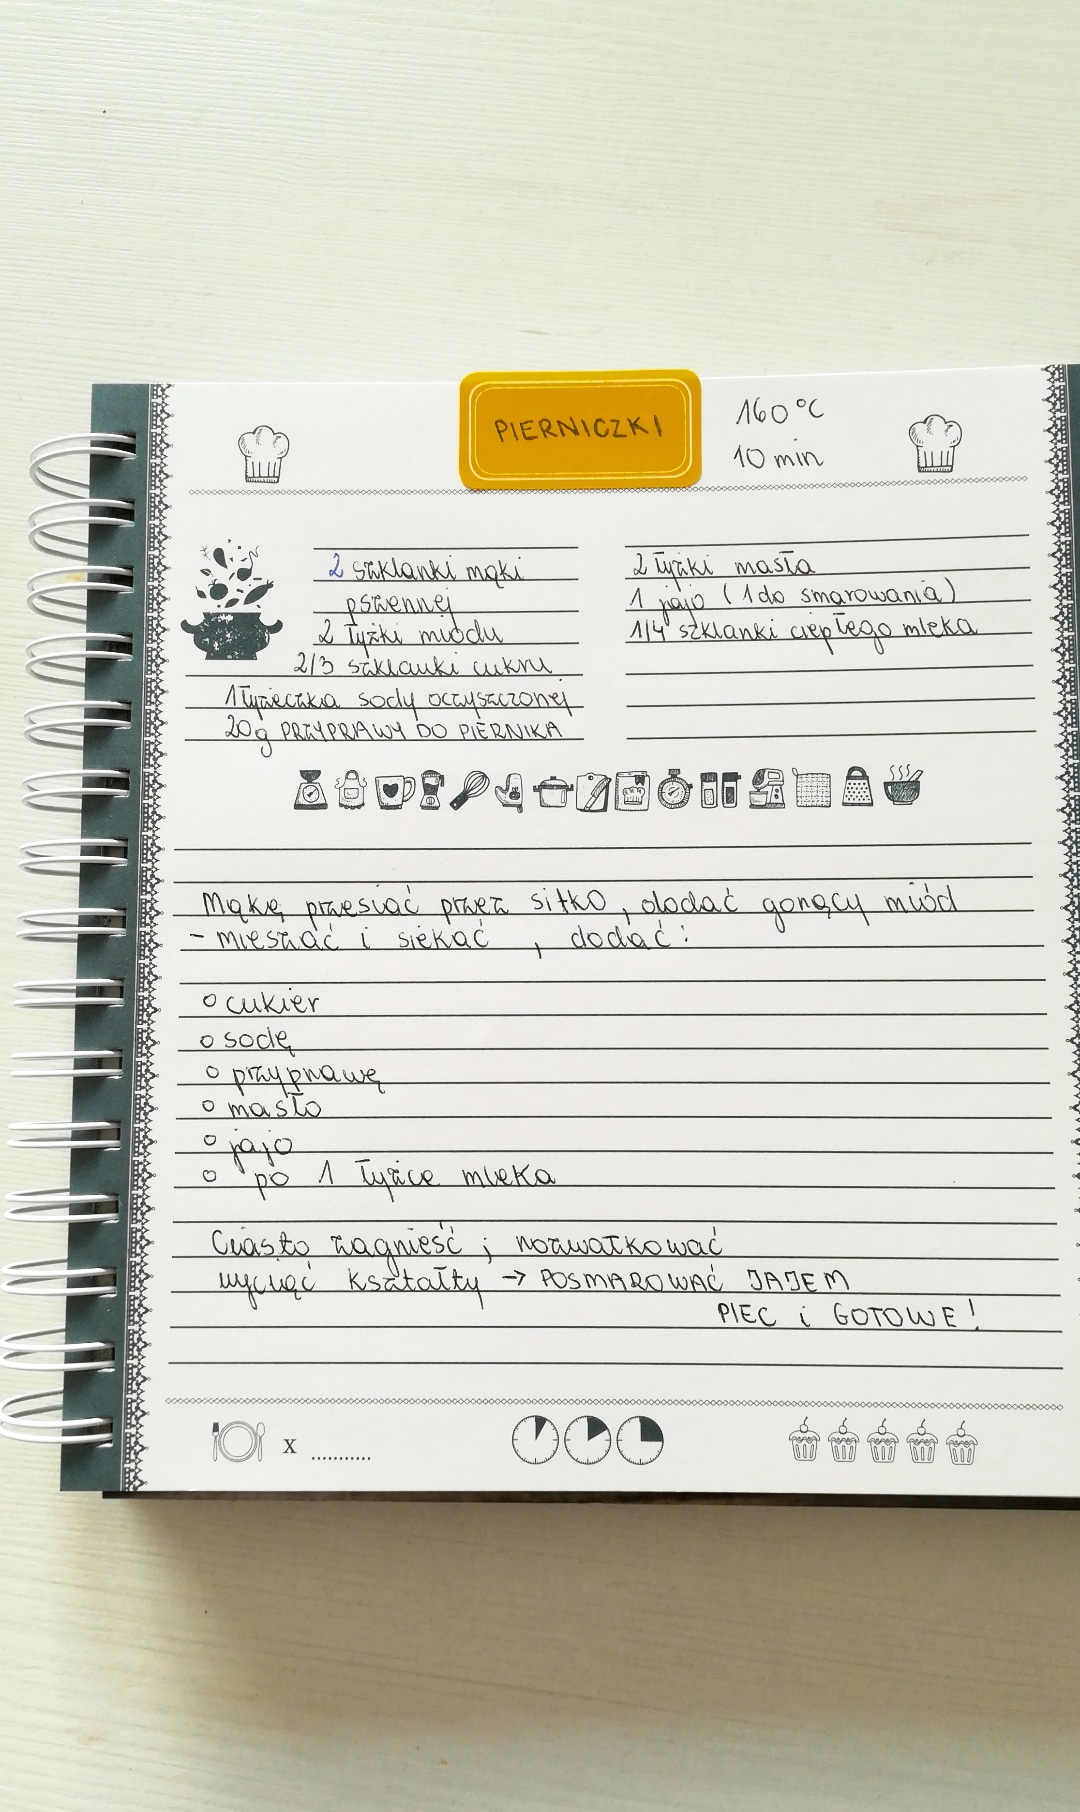 PIERNICZKI
160°C
10 min
2 szklanki mąki
pszennej
2 łyżki miodu
2/3 szklanki cukru
1 łyżeczka sody oczyszczonej
20g PRZYPRAWY DO PIERNIKA
2 łyżki masła
1 jajo (1 do smarowania)
1/4 szklanki ciepłego mleka
Mąkę przesiać przez sitko, dodać gorący miód
- mieszać i siekać , dodać:
○ cukier
○ sodę
○ przyprawę
○ masło
○ jajo
○ po 1 łyżce mleka
Ciasto zagnieść ; rozwałkować
wyciąć kształty → POSMAROWAĆ JAJEM
PIEC i GOTOWE!
x ...........